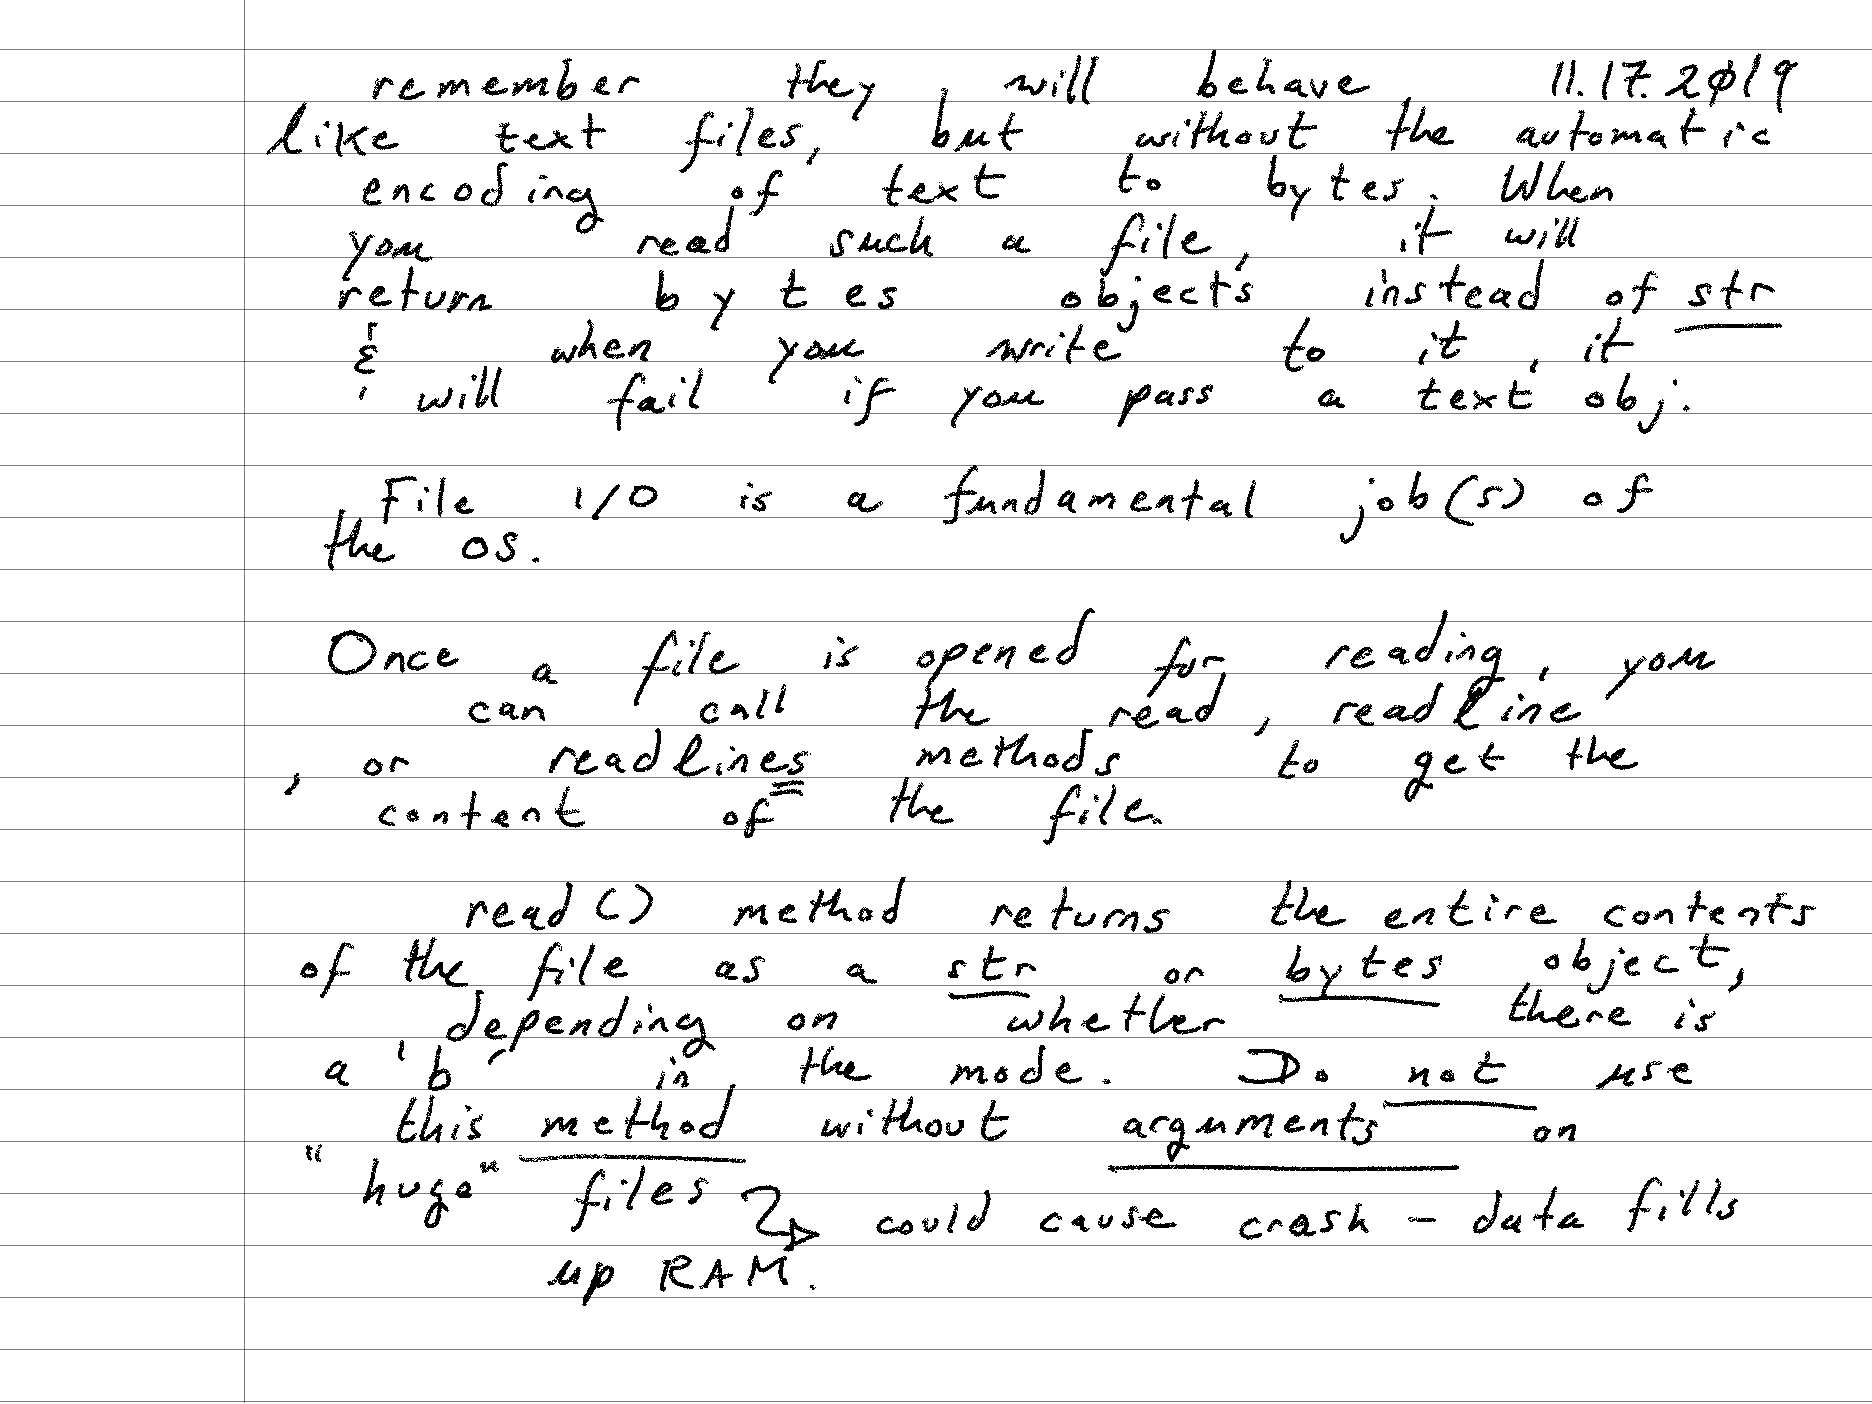 remember they will behave 11.17.2019
like text files, but without the automatic
encoding of text to bytes. When
you read such a file, it will
return bytes objects instead of str
& when you write to it, it
will fail if you pass a text obj.
File I/O is a fundamental job(s) of
the OS.
Once a file is opened for reading, you
can call the read, readline
, or readlines methods to get the
content of the file.
read() method returns the entire contents
of the file as a str or bytes object,
depending on whether there is
a 'b' in the mode. Do not use
this method without arguments on
"huge" files could cause crash - data fills
up RAM.